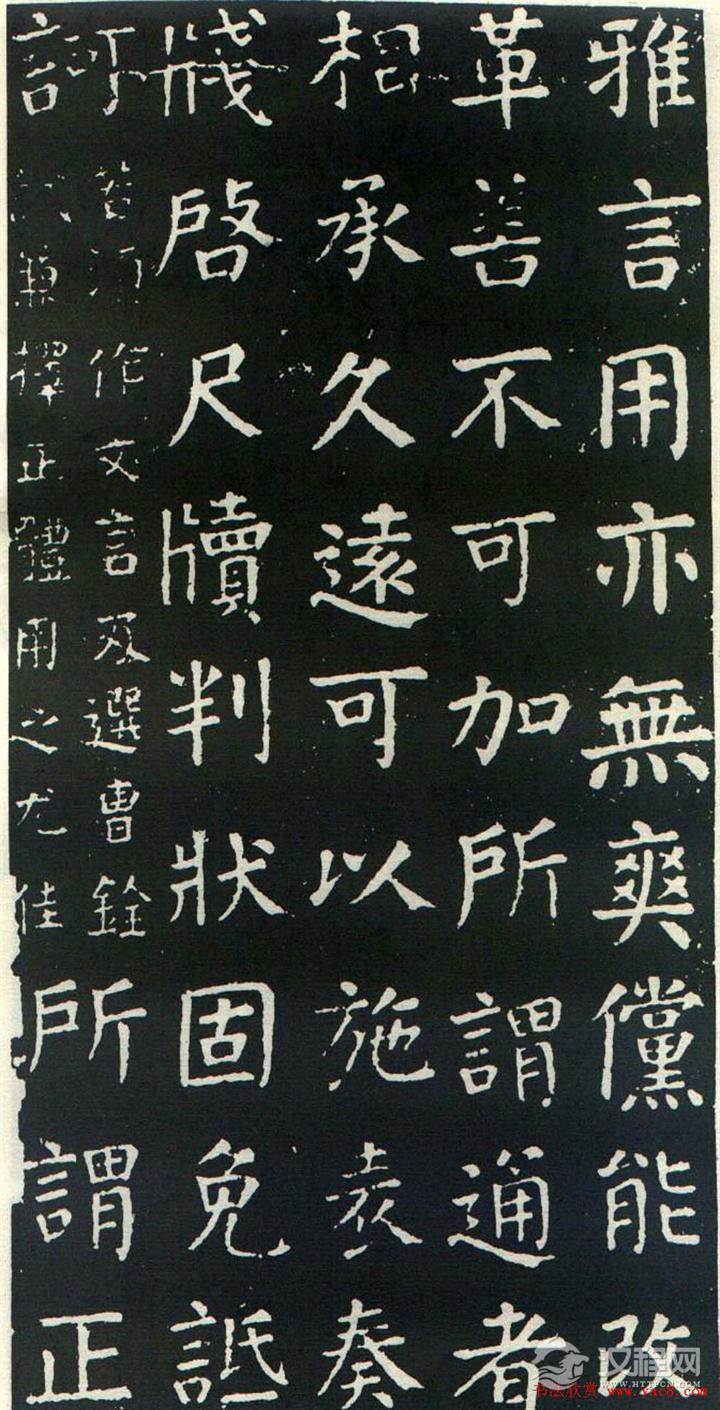 雅言用亦無爽儻能改
革善不可加所謂通者
相承久遠可以施表奏
牋啓尺牘判狀固免詆
訶
若須作文言及選曹銓
試兼擇正體用之尤佳
所謂正
汉程网
WWW.HTTPCN.COM
书法欣赏 www.yac8.com